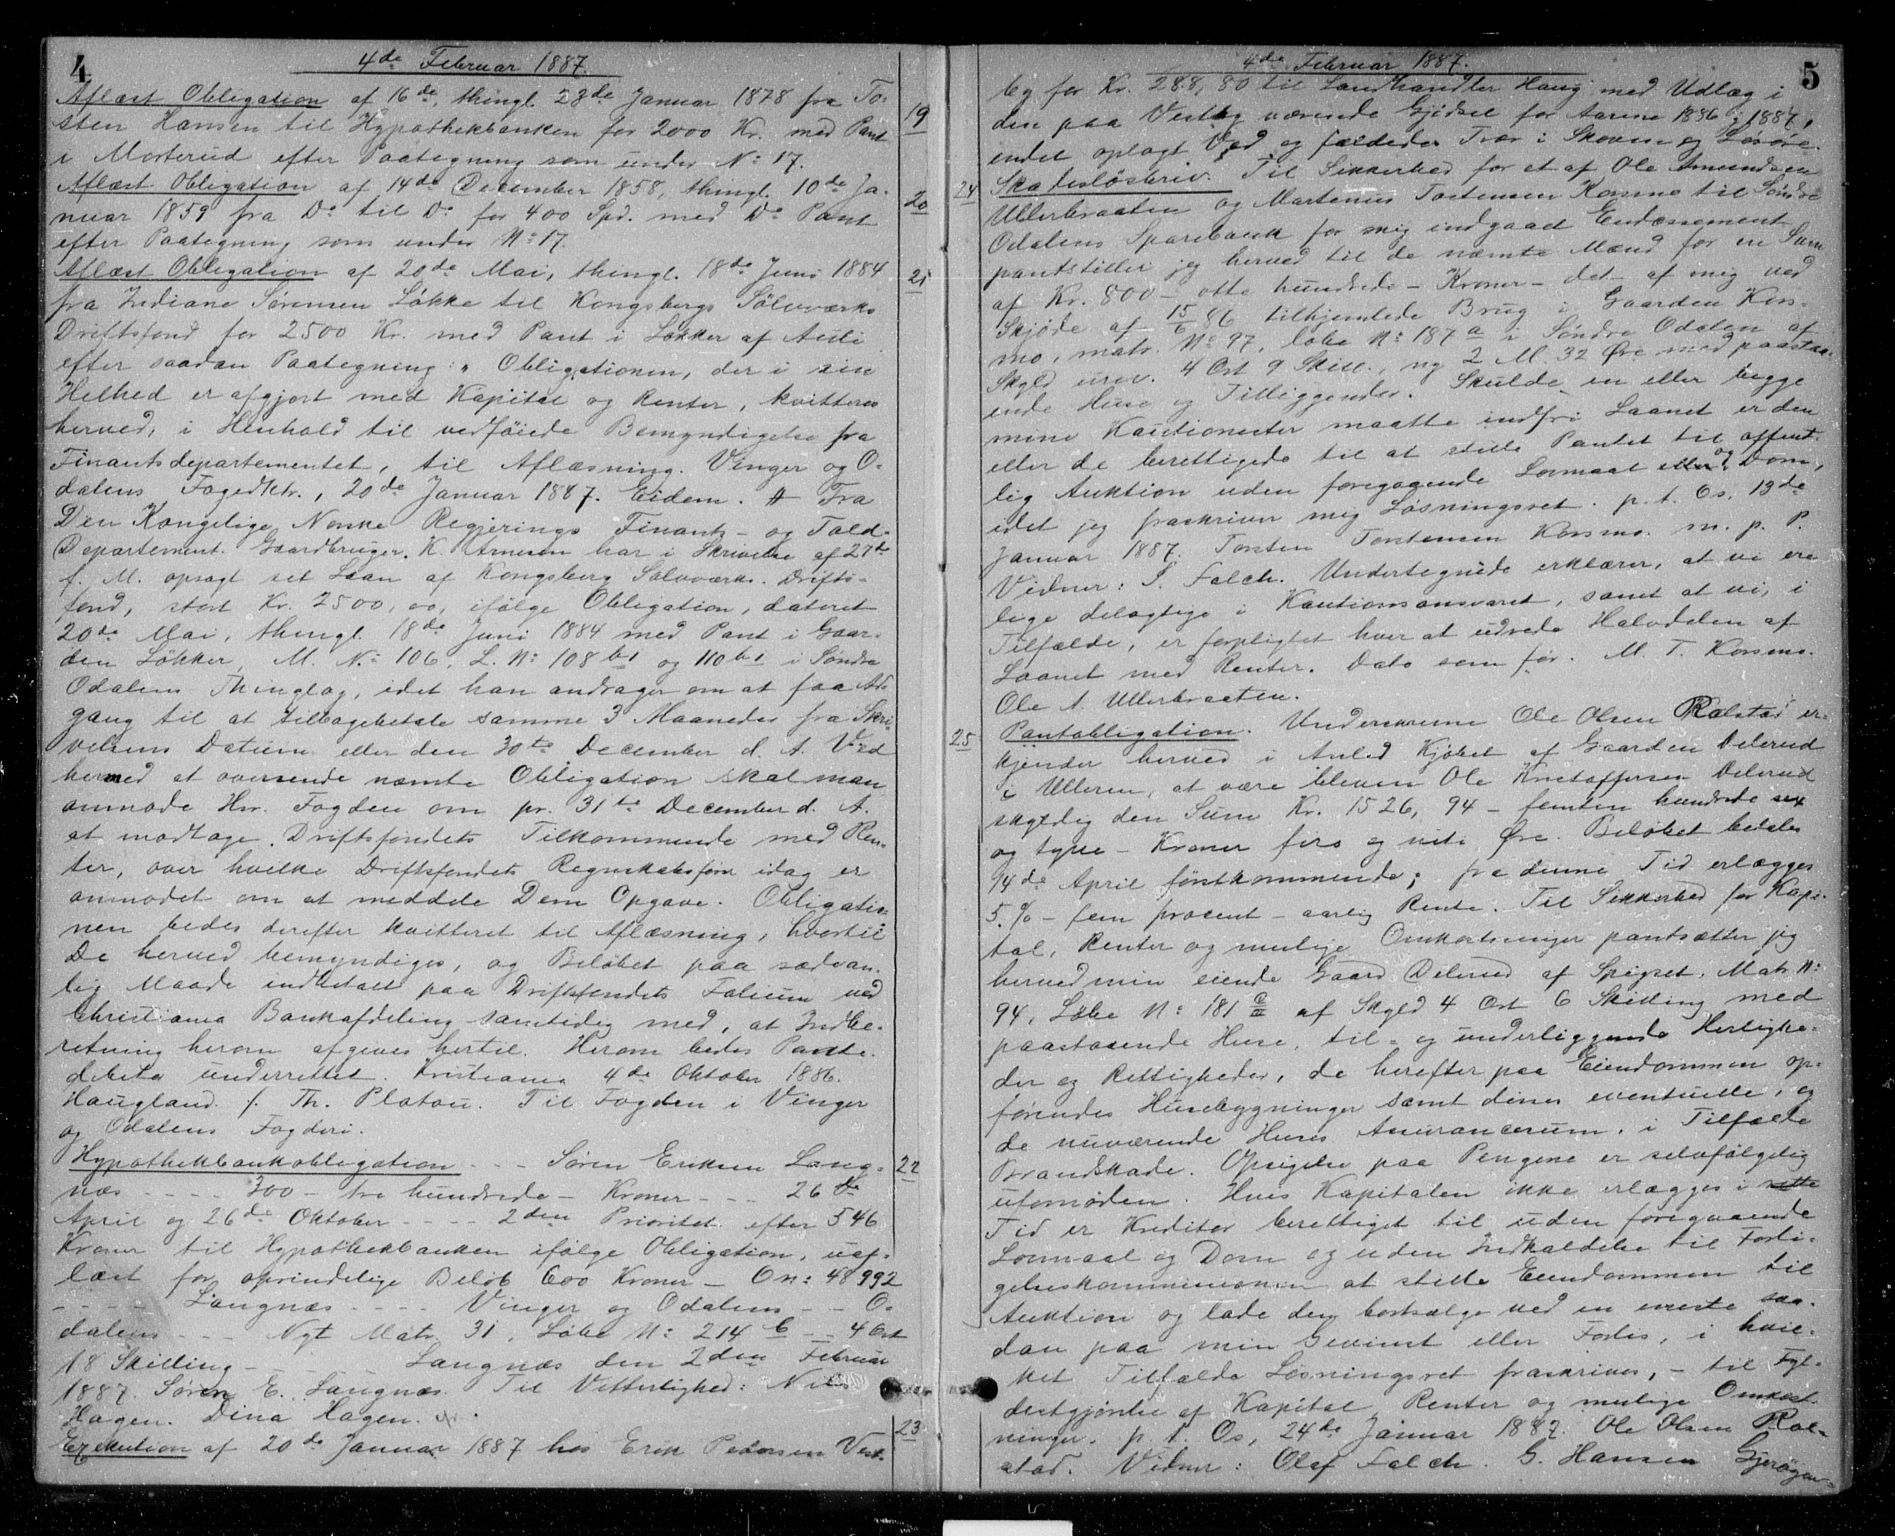 4
4de Februar 1887.
Aflæst Obligation af 16de, thingl. 23de Januar 1878 fra To-
sten Hansen til Hypothekbanken for 2000 Kr. med Pant
i Morterud efter Paategning som under No 17.
19
Aflæst Obligation af 14de December 1858, thingl. 10de Ja-
nuar 1859 fra Do til Do for 400 Spd. med Do Pant
efter Paategning som under No 17.
20
Aflæst Obligation af 20de Mai, thingl. 18de Juni 1884
21
fra Indiane Sørensen Løkke til Kongsbergs Sølvværks
Driftsfond for 2500 Kr. med Pant i Løkker af Auli
efter saadan Paategning: "Obligationen, der i sin
Helhed er afgjort med Kapital og Renter, kvitteres
herved, i Henhold til vedføiede Bemyndigelse fra
Finantsdepartementet, til Aflæsning. Vinger og O-
dalens Fogedktr., 20de Januar 1887. Eidem. # Fra
Den Kongelige Norske Regjerings Finants- og Told-
Departement. Gaardbruger K. Arnesen har i Skrivelse af 27de
f. M. opsagt sit Laan af Kongsberg Sølvværks Drifts-
fond, stort Kr. 2500,00, ifølge Obligation, dateret
20de Mai, thingl. 18de Juni 1884 med Pant i Gaar-
den Løkker, M. No 106, L. No 108 b1 og 110 b1 i Søndre
Odalens Thinglag, idet han andrager om at faa Ad-
gang til at tilbagebetale samme 3 Maaneder fra Skri-
velsens Datum eller den 30te December d. A. Ved
herved at oversende næmte Obligation skal man
anmode Hr. Fogden om pr. 31te December d. A.
at modtage Driftsfondets Tilkommende med Ren-
ter, over hvilke Driftsfondets Regnskabsfører idag er
anmodet om at meddele Dem Opgave. Obligatio-
nen bedes derefter kvitteret til Aflæsning, hvortil
De herved bemyndiges, og Beløbet paa sædvan-
lig Maade indbetalt paa Driftsfondets Folium ved
Christiania Bankafdeling samtidig med, at Indbe-
retning herom afgives hertil. Herom bedes Pante-
debitor underrettet. Kristiania 4de Oktober 1886.
Haugland. /. Th. Platou. Til Fogden i Vinger
og Odalens Fogderi.
Hypothekbankobligation - - - Søren Eriksen Lang-
22
næs - - - - 300 - tre hundrede - Kroner - - - 26de
April og 26de Oktober - - - - 2den Prioritet efter 546
Kroner til Hypothekbanken ifølge Obligation, uaf-
læst for oprindelige Beløb 600 Kroner - On: 48992
- - - - - Langnæs - - - - Vinger og Odalens - - O-
dalens - - - Nyt Matr. 31, Løbe No 214 c - - 4 Ort
18 Skilling - Langnæs den 2den Februar
1887. Søren E. Langnæs. Til Vitterlighed: Nils
Hagen. Dina Hagen.
Exekution af 20de Januar 1887 hos Erik Pedersen Vest-
23
5
4de Februar 1887.
by for Kr. 288,80 til Landhandler Haug med Udlæg i
den paa Vestby værende Gjødsel for Aarene 1886 og 1887,
endel oplagt Ved og fældede Træer i Skoven og Løsøre.
24
Skadesløsbrev. Til Sikkerhed for et af Ole Amundsen
Ullerbraaten og Martenius Tostensen Korsmo til Søndre
Odalens Sparebank for mig indgaaet Endossement
pantstiller jeg herved til de næmte Mænd for en Sum
af Kr. 800 - otte hundrede - Kroner - det af mig ved
Skjøde af 15/6 86 tilhjemlede Brug i Gaarden Kors-
mo, matr. No 97, løbe No 187 a i Søndre Odalen af
Skyld urev. 4 Ort 9 Skill., ny 2 M. 32 Øre med paastaa-
ende Huse og Tilliggender. Skulde en eller begge
mine Kautionister maatte indfri Laanet er den
eller de berettigede til at stille Pantet til offent-
lig Auktion uden foregaaende Lovmaal eller og Dom,
idet jeg fraskriver mig Løsningsret. p. t. Os, 13de
Januar 1887. Torsten Torstensen Korsmo. m. p. P.
Vidner: S. Falch. Undertegnede erklærer, at vi ere
lige delagtige i Kautionsansvaret, samt at vi, i
Tilfælde, er forpligtet hver at udrede Halvdelen af
Laanet med Renter. Dato som før. M. T. Korsmo.
Ole A. Ullerbraaten.
25
Pantobligation. Underskrevne Ole Olsen Rolstad er-
kjender herved i Anled Kjøbet af Gaarden Delerud
i Ulleren, at være bleven Ole Kristoffersen Delerud
skyldig den Sum Kr. 1526,94 - femten hundrede sex
og tyve - Kroner fire og niti Øre. Beløbet betales
14de April førstkommende; fra denne Tid erlægges
5 % - fem procent - aarlig Rente. Til Sikkerhed for Kapi-
tal, Renter og mulige Omkostninger pantsætter jeg
herved min eiende Gaard Delerud af Spigset, Matr. No
94, Løbe No 181 af Skyld 4 Ort 6 Skilling med
paastaaende Huse, til- og underliggende Herlighe-
der og Rettigheder, de herefter paa Eiendommen op-
førendes Husebygninger samt disses eventuelle, og
de nuværende Huses Assurancesum, i Tilfælde
Brandskade. Opsigelse paa Pengene er selvfølgelig
ufornøden. Hvis Kapitalen ikke erlægges i rette
Tid er Kreditor berettiget til uden foregaaende
Lovmaal og Dom og uden Indkaldelse til Forli-
gelseskommissionen at stille Eiendommen til
Auktion og lade den bortsælge ved en eneste saa-
dan paa min Gevinst eller Forlis, i hvil-
ket Tilfælde Løsningsret fraskrives, - til Fyl-
destgjørelse af Kapital, Renter og mulige Omkost-
ninger. p. t. Os, 24de Januar 1887. Ole Olsen Rol-
stad. Vidner: Olaf Falch. G. Hansen Gjersøgen-